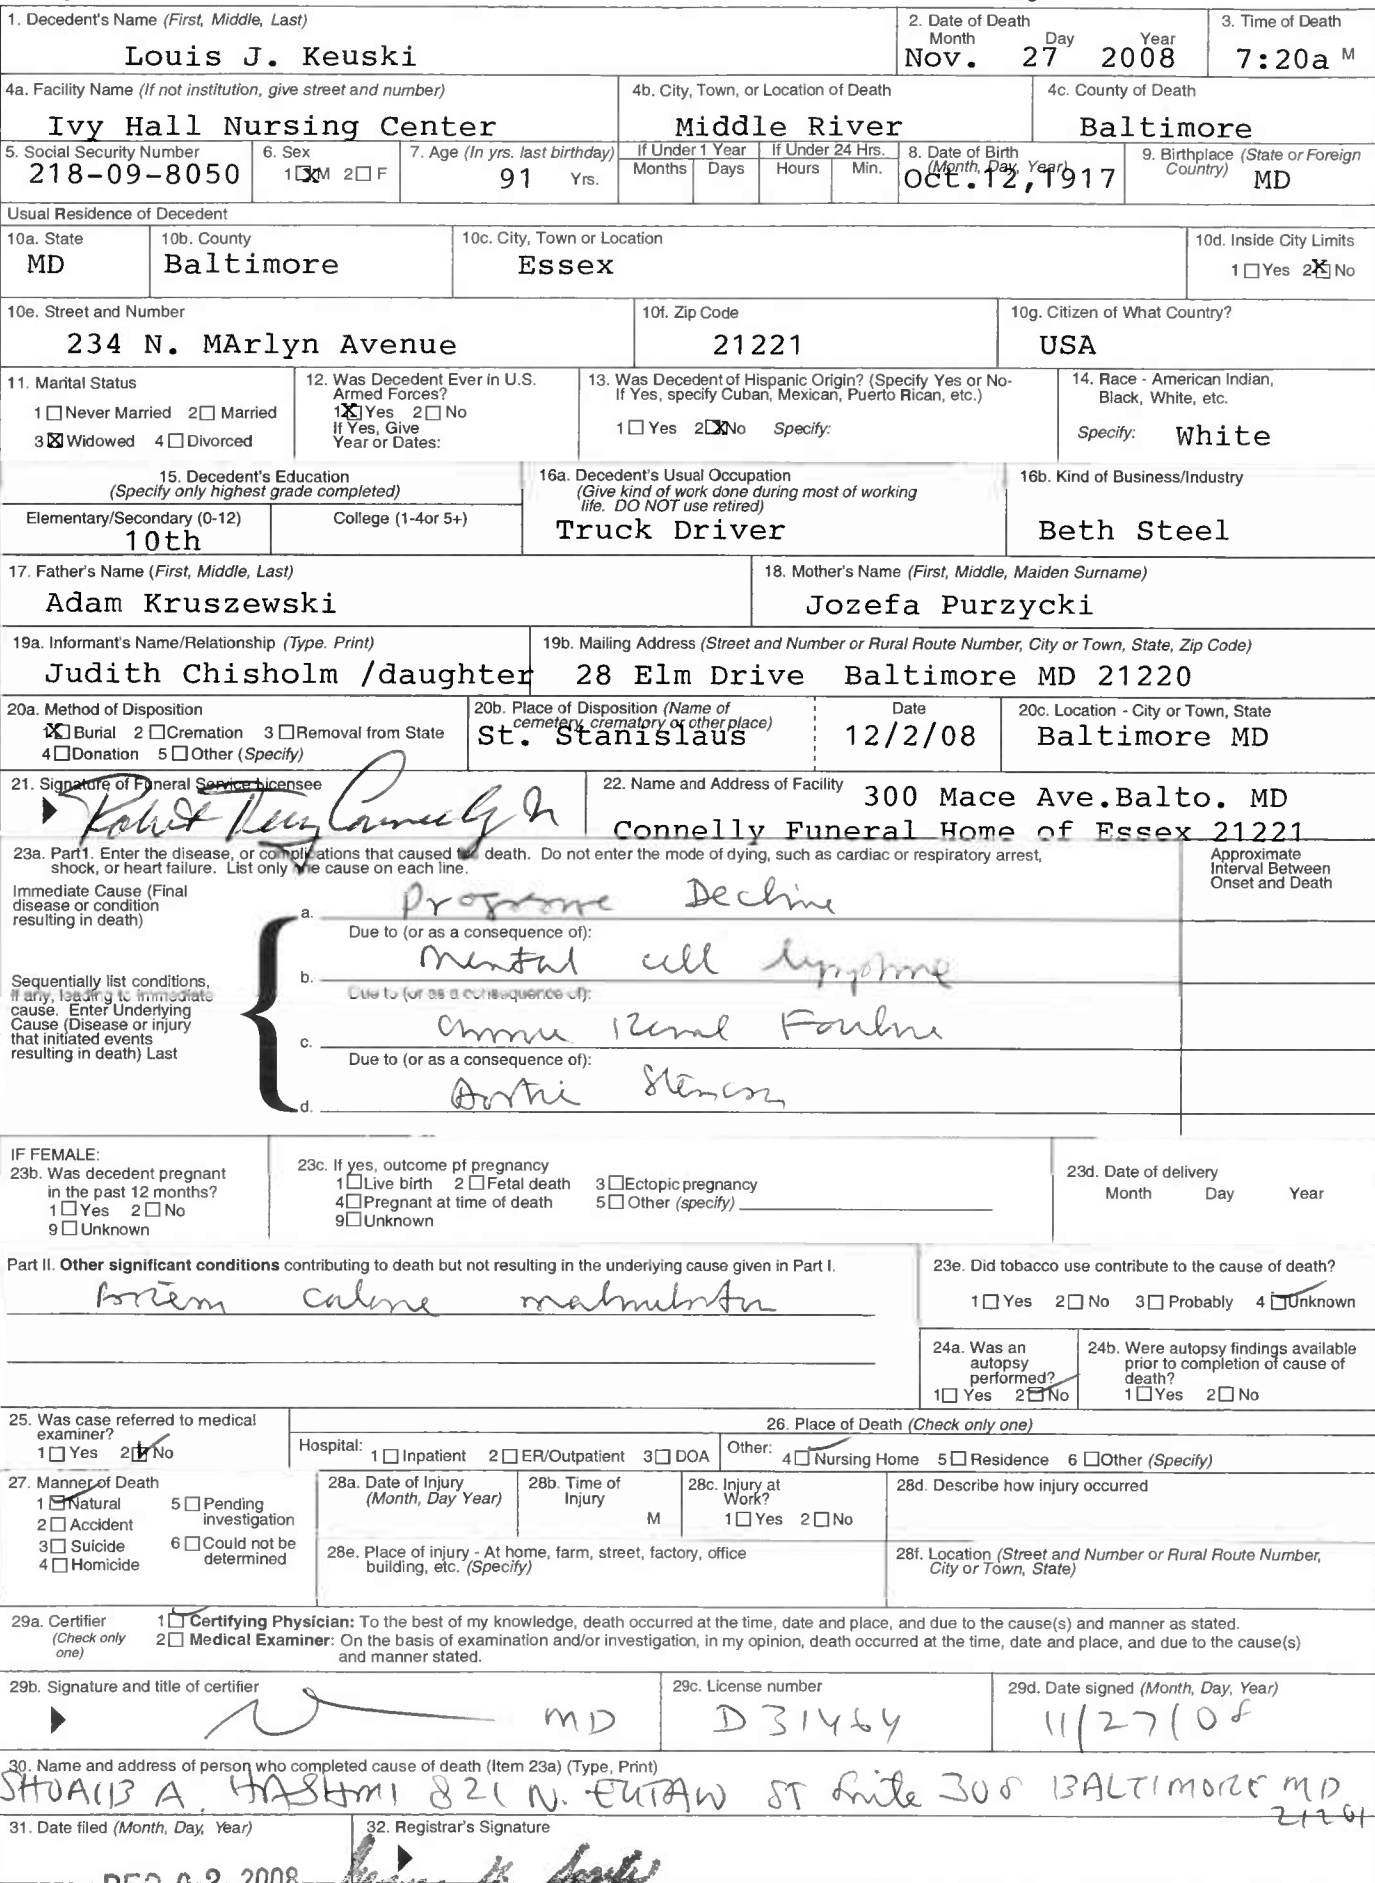 1. Decedent's Name (First, Middle, Last)
Louis J. Keuski
2. Date of Death
Month Day Year
Nov. 27 2008
3. Time of Death
7:20a M
4a. Facility Name (If not institution, give street and number)
Ivy Hall Nursing Center
4b. City, Town, or Location of Death
Middle River
4c. County of Death
Baltimore
5. Social Security Number
218-09-8050
6. Sex
1☒M 2☐F
7. Age (In yrs. last birthday)
91 Yrs.
If Under 1 Year
Months Days
If Under 24 Hrs.
Hours Min.
8. Date of Birth
(Month, Day, Year)
Oct.12,1917
9. Birthplace (State or Foreign
Country)
MD
Usual Residence of Decedent
10a. State
MD
10b. County
Baltimore
10c. City, Town or Location
Essex
10d. Inside City Limits
1☐Yes 2☒No
10e. Street and Number
234 N. MArlyn Avenue
10f. Zip Code
21221
10g. Citizen of What Country?
USA
11. Marital Status
1☐Never Married 2☐Married
3☒Widowed 4☐Divorced
12. Was Decedent Ever in U.S.
Armed Forces?
1☒Yes 2☐No
If Yes, Give
Year or Dates:
13. Was Decedent of Hispanic Origin? (Specify Yes or No-
If Yes, specify Cuban, Mexican, Puerto Rican, etc.)
1☐Yes 2☒No Specify:
14. Race - American Indian,
Black, White, etc.
Specify: White
15. Decedent's Education
(Specify only highest grade completed)
Elementary/Secondary (0-12)
10th
College (1-4or 5+)
16a. Decedent's Usual Occupation
(Give kind of work done during most of working
life. DO NOT use retired)
Truck Driver
16b. Kind of Business/Industry
Beth Steel
17. Father's Name (First, Middle, Last)
Adam Kruszewski
18. Mother's Name (First, Middle, Maiden Surname)
Jozefa Purzycki
19a. Informant's Name/Relationship (Type. Print)
Judith Chisholm /daughter
19b. Mailing Address (Street and Number or Rural Route Number, City or Town, State, Zip Code)
28 Elm Drive Baltimore MD 21220
20a. Method of Disposition
1☒Burial 2☐Cremation 3☐Removal from State
4☐Donation 5☐Other (Specify)
20b. Place of Disposition (Name of
cemetery, crematory or other place)
St. Stanislaus
Date
12/2/08
20c. Location - City or Town, State
Baltimore MD
21. Signature of Funeral Service Licensee
22. Name and Address of Facility
300 Mace Ave.Balto. MD
Connelly Funeral Home of Essex 21221
23a. Part1. Enter the disease, or complications that caused the death. Do not enter the mode of dying, such as cardiac or respiratory arrest,
shock, or heart failure. List only one cause on each line.
Approximate
Interval Between
Onset and Death
Immediate Cause (Final
disease or condition
resulting in death)
a. Decline
Due to (or as a consequence of):
b. cell
Sequentially list conditions,
if any, leading to immediate
cause. Enter Underlying
Cause (Disease or injury
that initiated events
resulting in death) Last
Due to (or as a consequence of):
c. Renal Failure
Due to (or as a consequence of):
d. Aortic Stenosis
IF FEMALE:
23b. Was decedent pregnant
in the past 12 months?
1☐Yes 2☐No
9☐Unknown
23c. If yes, outcome pf pregnancy
1☐Live birth 2☐Fetal death 3☐Ectopic pregnancy
4☐Pregnant at time of death 5☐Other (specify)
9☐Unknown
23d. Date of delivery
Month Day Year
Part II. Other significant conditions contributing to death but not resulting in the underlying cause given in Part I.
23e. Did tobacco use contribute to the cause of death?
1☐Yes 2☐No 3☐Probably 4☑Unknown
24a. Was an
autopsy
performed?
1☐Yes 2☑No
24b. Were autopsy findings available
prior to completion of cause of
death?
1☐Yes 2☐No
25. Was case referred to medical
examiner?
1☐Yes 2☑No
26. Place of Death (Check only one)
Hospital: 1☐Inpatient 2☐ER/Outpatient 3☐DOA
Other: 4☑Nursing Home 5☐Residence 6☐Other (Specify)
27. Manner of Death
1☑Natural
2☐Accident
3☐Suicide
4☐Homicide
5☐Pending
investigation
6☐Could not be
determined
28a. Date of Injury
(Month, Day Year)
28b. Time of
Injury
M
28c. Injury at
Work?
1☐Yes 2☐No
28d. Describe how injury occurred
28e. Place of injury - At home, farm, street, factory, office
building, etc. (Specify)
28f. Location (Street and Number or Rural Route Number,
City or Town, State)
29a. Certifier
(Check only
one)
1☑Certifying Physician: To the best of my knowledge, death occurred at the time, date and place, and due to the cause(s) and manner as stated.
2☐Medical Examiner: On the basis of examination and/or investigation, in my opinion, death occurred at the time, date and place, and due to the cause(s)
and manner stated.
29b. Signature and title of certifier
MD
29c. License number
D31464
29d. Date signed (Month, Day, Year)
11/27/08
30. Name and address of person who completed cause of death (Item 23a) (Type, Print)
SHUAIB A. HASHMI 821 N. EUTAW ST Suite 308 BALTIMORE MD
21201
31. Date filed (Month, Day, Year)
DEC 02 2008
32. Registrar's Signature